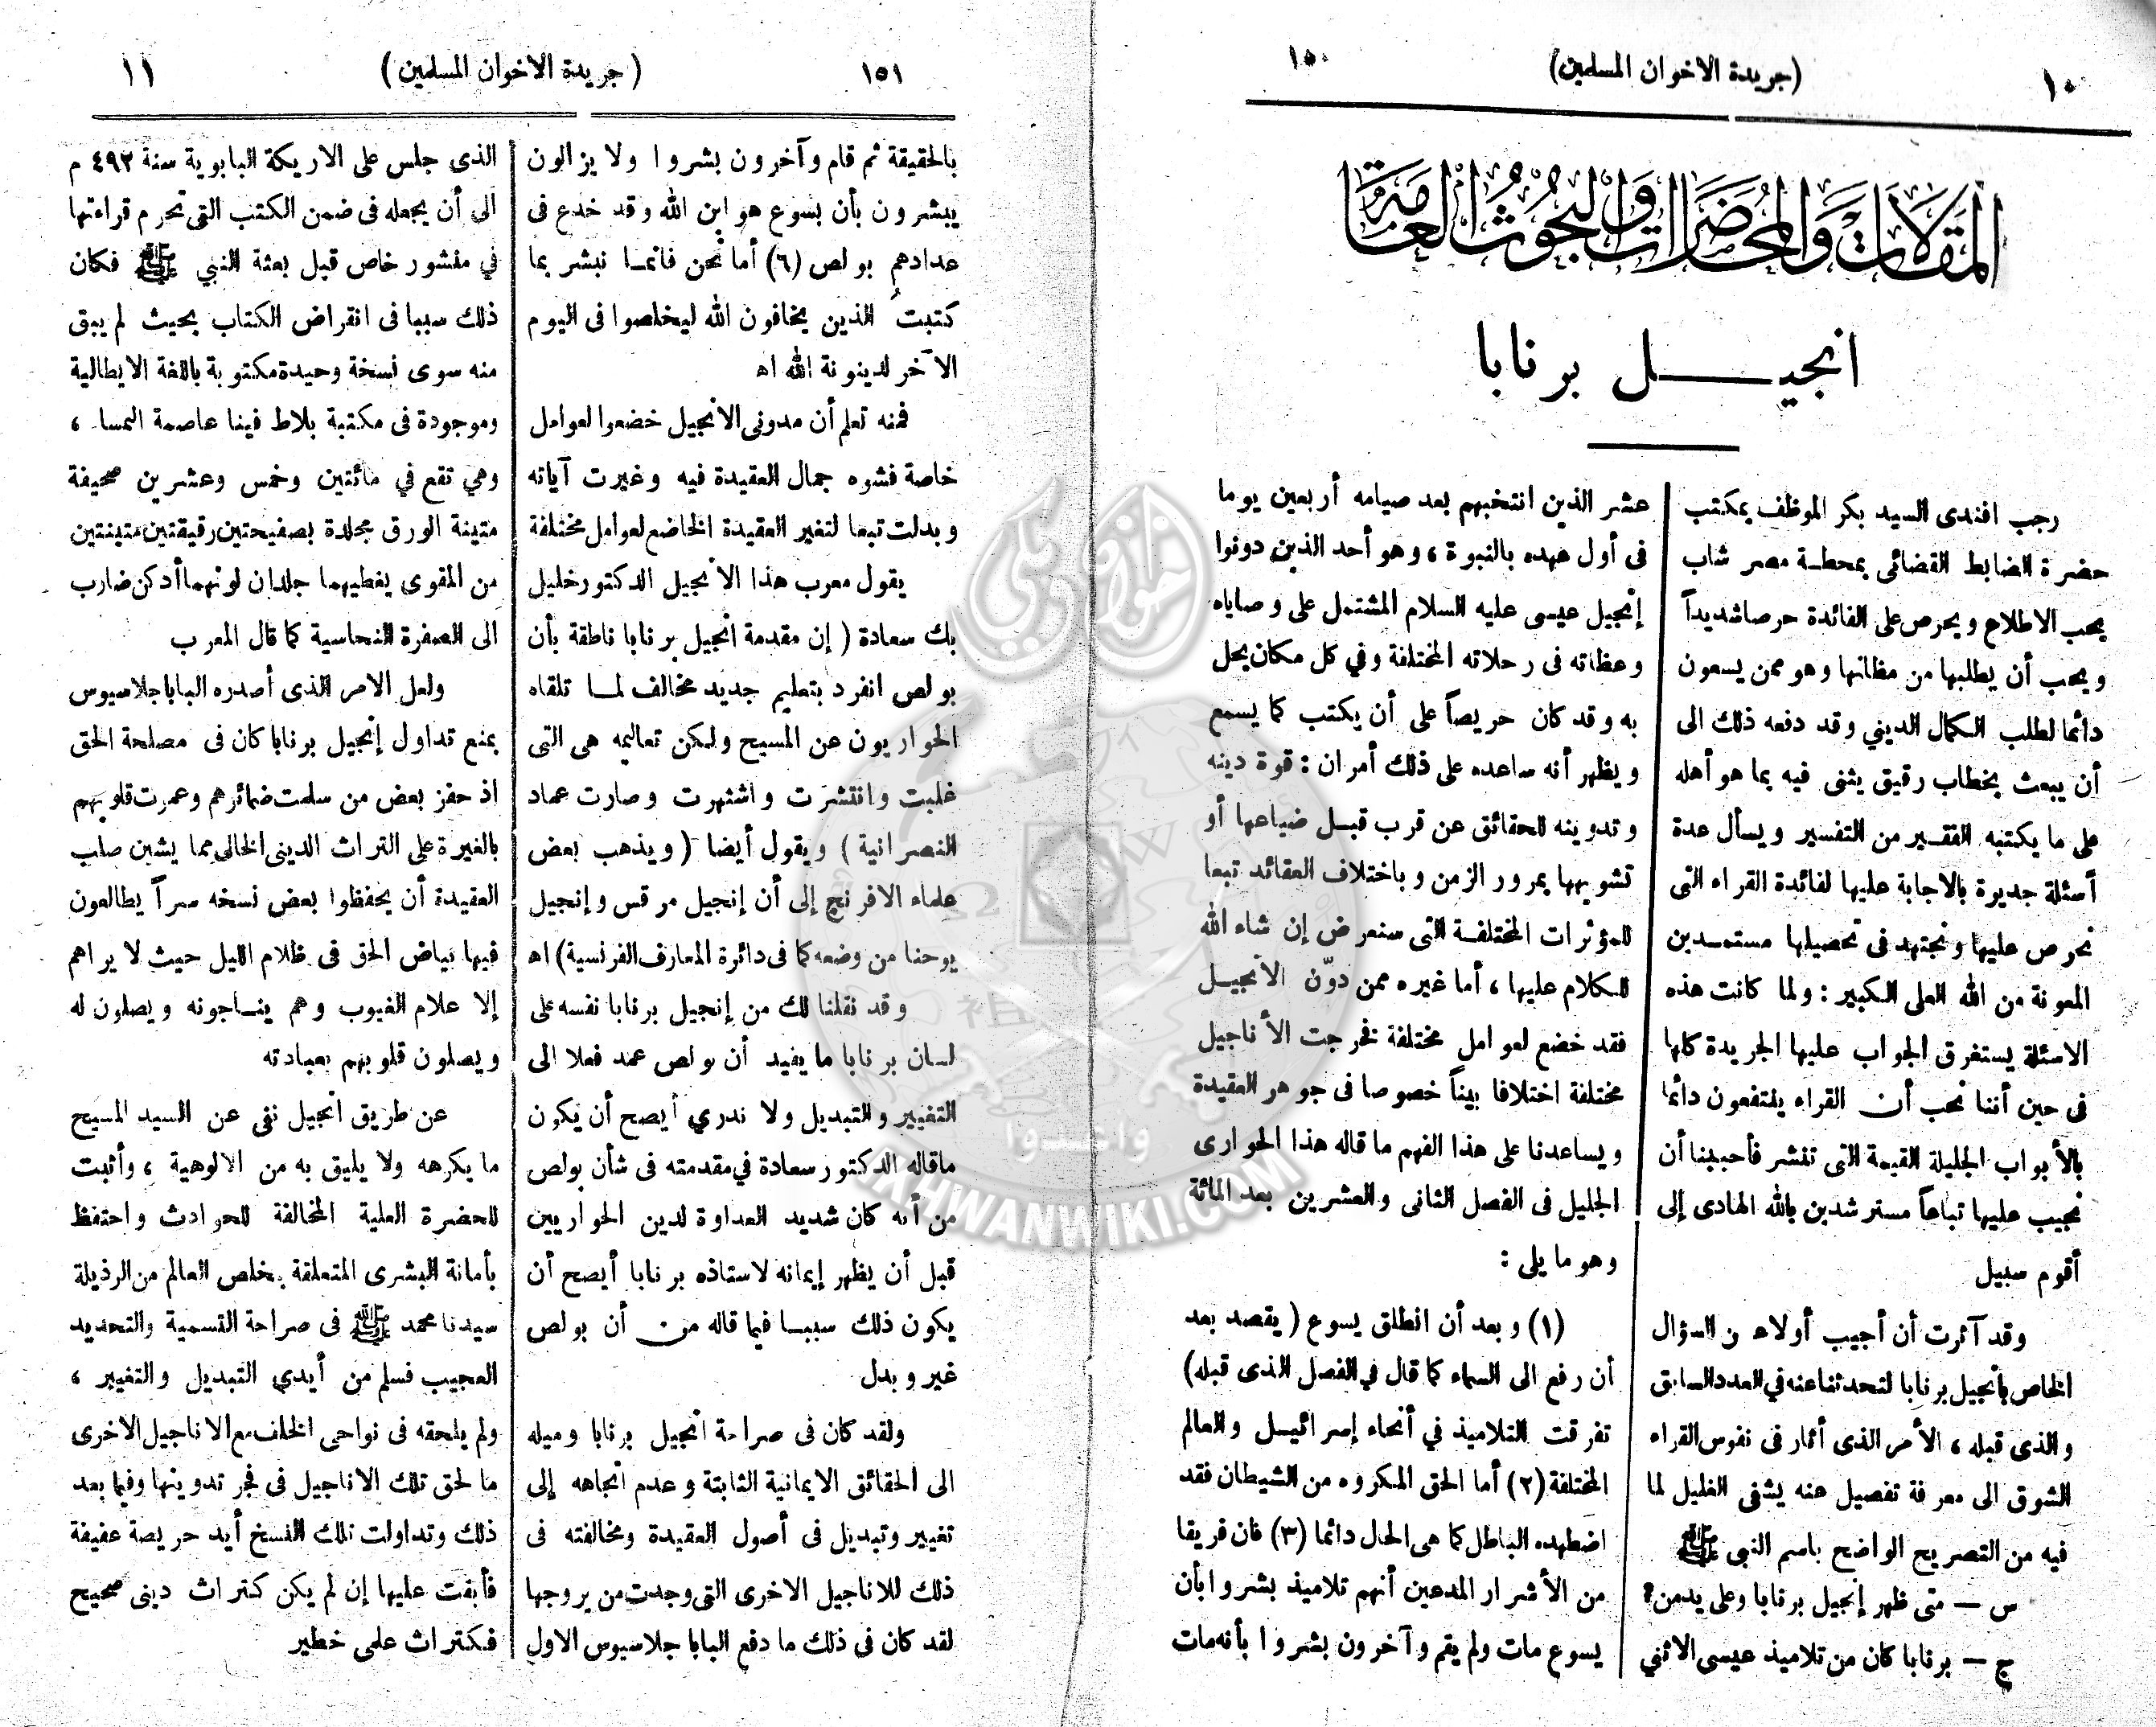 ١٠
(جريدة الاخوان المسلمين)
١٥٠
المقالات والمحاضرات والبحوث العامة
انجيـــل برنابا
رجب افندى السيد بكر الموظف بمكتب
حضرة الضابط القضائى بمحطة مصر شاب
يحب الاطلاع ويحرص على الفائدة حرصا شديداً
ويحب أن يطلبها من مظانها وهو ممن يسعون
دائما لطلب الكمال الديني وقد دفعه ذلك الى
أن يبعث بخطاب رقيق يثنى فيه بما هو أهله
على ما يكتبه الفقير من التفسير ويسأل عدة
أسئلة جديرة بالاجابة عليها لفائدة القراء التى
نحرص عليها ونجتهد فى تحصيلها مستمدين
المعونة من الله العلى الكبير : ولما كانت هذه
الاسئلة يستغرق الجواب عليها الجريدة كلها
فى حين أننا نحب أن القراء ينتفعون دائما
بالأبواب الجليلة القيمة التى تنشر فأحببنا أن
نجيب عليها تباعاً مسترشدين بالله الهادى إلى
أقوم سبيل
وقد آثرت أن أجيب أولا عن السؤال
الخاص بأنجيل برنابا لتحدثنا عنه في العدد السابق
والذى قبله ، الأمر الذى أثار فى نفوس القراء
الشوق الى معرفة تفصيل عنه يشفى الغليل لما
فيه من التصريح الواضح باسم النبى ﷺ
س — متى ظهر إنجيل برنابا وعلى يد من ؟
ج — برنابا كان من تلاميذ عيسى الاثني
عشر الذين انتخبهم بعد صيامه أربعين يوما
فى أول عهده بالنبوة ، وهو أحد الذين دونوا
إنجيل عيسى عليه السلام المشتمل على وصاياه
وعظاته فى رحلاته المختلفة وفي كل مكان يحل
به وقد كان حريصاً على أن يكتب كما يسمع
ويظهر أنه ساعده على ذلك أمران : قوة دينه
وتدوينه للحقائق عن قرب قبل ضياعها أو
تشويهها بمرور الزمن وباختلاف العقائد تبعا
للمؤثرات المختلفة التى سنعرض إن شاء الله
للكلام عليها ، أما غيره ممن دوّن الانجيل
فقد خضع لعوامل مختلفة فخرجت الأناجيل
مختلفة اختلافا بيناً خصوصا فى جوهر العقيدة
ويساعدنا على هذا الفهم ما قاله هذا الحوارى
الجليل فى الفصل الثانى والعشرين بعد المائة
وهو ما يلى :
(١) وبعد أن انطلق يسوع ( يقصد بعد
أن رفع الى السماء كما قال في الفصل الذى قبله)
تفرقت التلاميذ في أنحاء إسرائيل والعالم
المختلفة (٢) أما الحق المكروه من الشيطان فقد
اضطهده الباطل كما هى الحال دائما (٣) فان فريقا
من الأشرار المدعين أنهم تلاميذ بشروا بأن
يسوع مات ولم يقم وآخرون بشروا بأنه مات
١٥١
(جريدة الاخوان المسلمين)
١١
بالحقيقة ثم قام وآخرون بشروا ولا يزالون
يبشرون بأن يسوع هو ابن الله وقد خدع فى
عدادهم بولص (٦) أما نحن فانما نبشر بما
كتبتُ الذين يخافون الله ليخلصوا فى اليوم
الآخر لدينونة الله اه
فمنه تعلم أن مدونى الانجيل خضعوا لعوامل
خاصة فشوه جمال العقيدة فيه وغيرت آياته
وبدلت تبعا لتغير العقيدة الخاضع لعوامل مختلفة
يقول معرب هذا الانجيل الدكتور خليل
بك سعادة ( إن مقدمة انجيل برنابا ناطقة بأن
بولص انفرد بتعليم جديد مخالف لما تلقاه
الحواريون عن المسيح ولكن تعاليمه هى التى
غلبت وانتشرت واشتهرت وصارت عماد
النصرانية ) ويقول أيضا ( ويذهب بعض
علماء الافرنج إلى أن إنجيل مرقس وإنجيل
يوحنا من وضعه كما فى دائرة المعارف الفرنسية) اه
وقد نقلنا لك من إنجيل برنابا نفسه على
لسان برنابا ما يفيد أن بولص عمد فعلا الى
التغيير والتبديل ولا ندري أيصح أن يكون
ماقاله الدكتور سعادة في مقدمته فى شأن بولص
من أنه كان شديد العداوة لدين الحواريين
قبل أن يظهر إيمانه لاستاذه برنابا أيصح أن
يكون ذلك سببا فيما قاله من أن بولص
غير وبدل
ولقد كان فى صراحة انجيل برنابا وميله
الى الحقائق الايمانية الثابتة وعدم اتجاهه إلى
تغيير وتبديل فى أصول العقيدة ومخالفته فى
ذلك للاناجيل الاخرى التى وجدت من يروجها
لقد كان فى ذلك ما دفع البابا جلاسيوس الاول
الذى جلس على الاريكة البابوية سنة ٤٩٢ م
الى أن يجعله فى ضمن الكتب التى تحرم قراءتها
في منشور خاص قبل بعثة النبي ﷺ فكان
ذلك سببا فى انقراض الكتاب بحيث لم يبق
منه سوى نسخة وحيدة مكتوبة باللغة الايطالية
وموجودة فى مكتبة بلاط فينا عاصمة النمسا ،
وهي تقع في مائتين وخمس وعشرين صحيفة
متينة الورق مجلدة بصفيحتين رقيقتين متينتين
من المقوى يغطيهما جلدان لونهما أدكن ضارب
الى الصفرة النحاسية كما قال المعرب
ولعل الامر الذى أصدره البابا جلاسيوس
بمنع تداول إنجيل برنابا كان فى مصلحة الحق
اذ حفز بعض من سلمت ضمائرهم وعمرت قلوبهم
بالغيرة على التراث الدينى الخالى مما يشين صلب
العقيدة أن يحفظوا بعض نسخه سراً يطالعون
فيها بياض الحق فى ظلام الليل حيث لا يراهم
إلا علام الغيوب وهم يناجونه ويصلون له
ويصلون قلوبهم بعبادته
عن طريق انجيل نفى عن السيد المسيح
ما يكرهه ولا يليق به من الالوهية ، وأثبت
للحضرة العلية المخالفة للحوادث واحتفظ
بأمانة البشرى المتعلقة بمخلص العالم من الرذيلة
سيدنا محمد ﷺ فى صراحة التسمية والتحديد
العجيب فسلم من أيدي التبديل والتغيير ،
ولم يلحقه فى نواحى الخلف مع الاناجيل الاخرى
ما لحق تلك الاناجيل فى فجر تدوينها وفيما بعد
ذلك وتداولت تلك النسخ أيد حريصة عفيفة
فأبقت عليها إن لم يكن كتراث دينى صحيح
فكتراث علمى خطير
IKHWANWIKI.COM